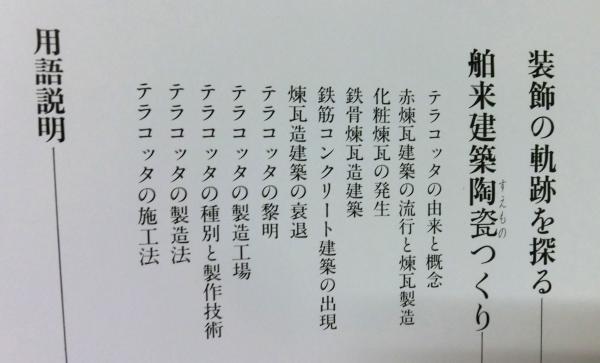 装飾の軌跡を探る
舶来建築陶瓷つくり
すえもの
テラコッタの由来と概念
赤煉瓦建築の流行と煉瓦製造
化粧煉瓦の発生
鉄骨煉瓦造建築
鉄筋コンクリート建築の出現
煉瓦造建築の衰退
テラコッタの黎明
テラコッタの製造工場
テラコッタの種別と製作技術
テラコッタの製造法
テラコッタの施工法
用語説明